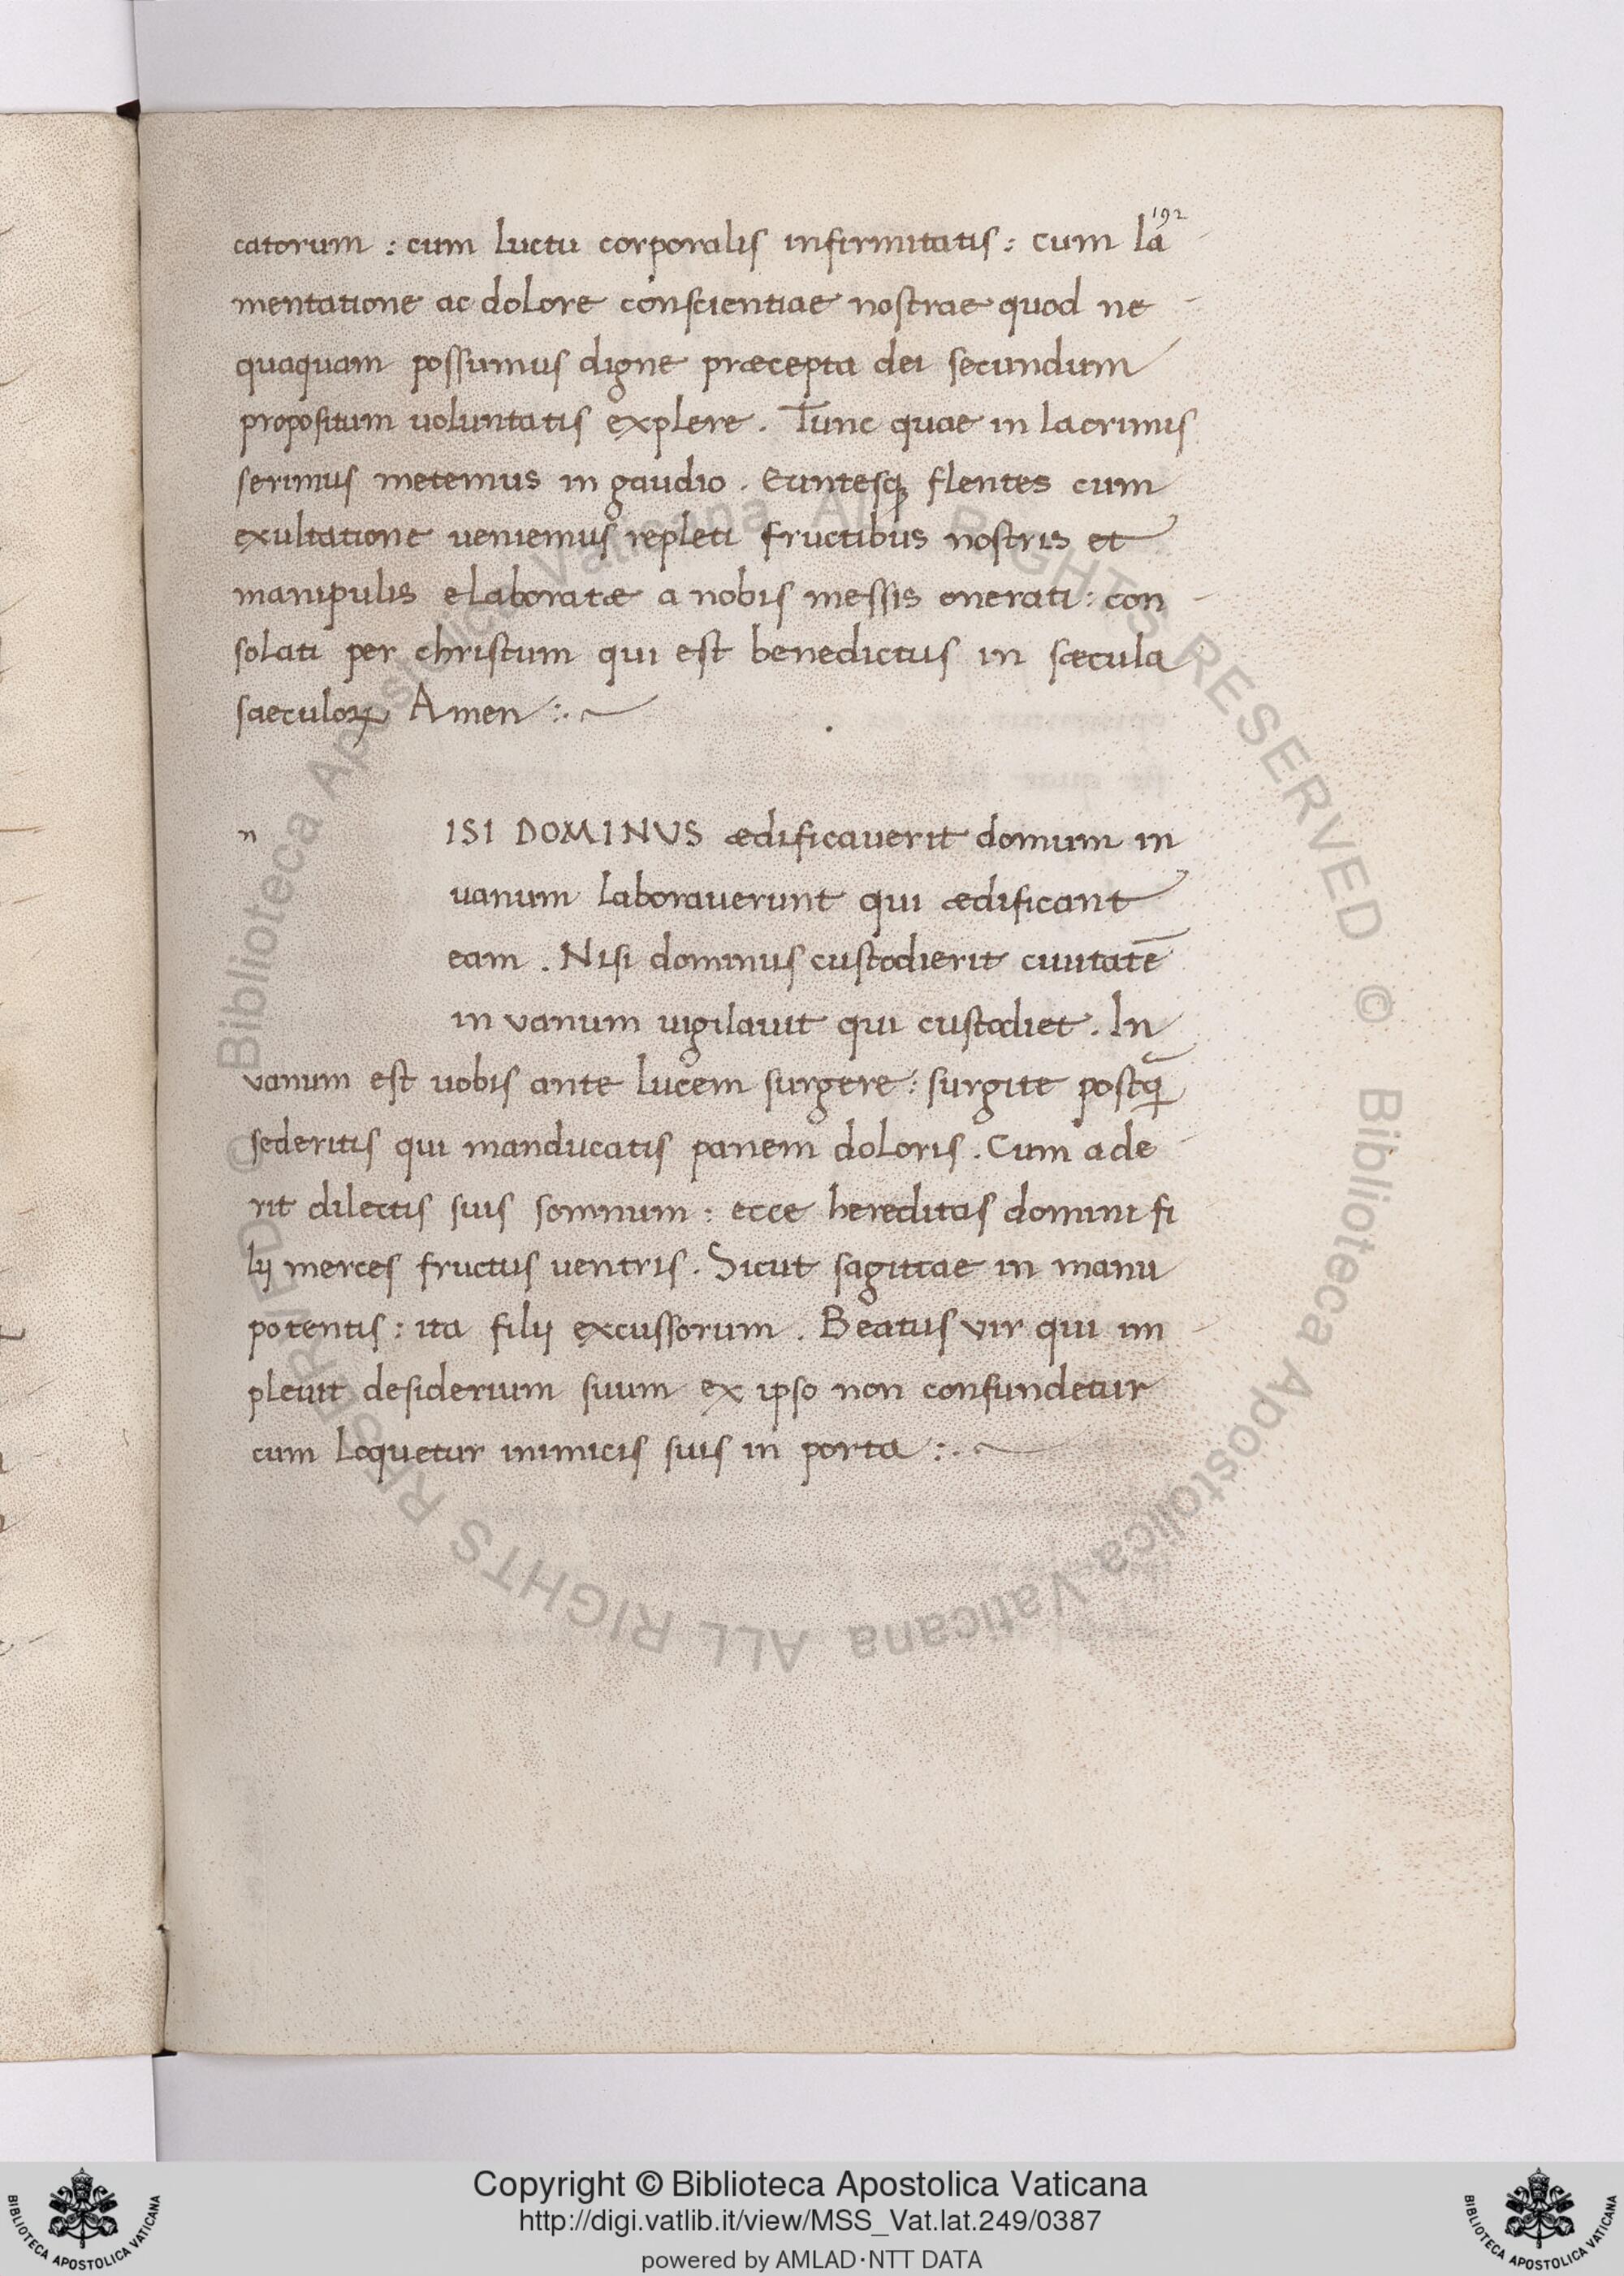 192
catorum : cum luctu corporalis infirmitatis : cum la
mentatione ac dolore conscientiae nostrae quod ne
quaquam possumus digne præcepta dei secundum
propositum voluntatis explere . Tunc quae in lacrimis
serimus metemus in gaudio . Euntesq; flentes cum
exultatione veniemus repleti fructibus nostris et
manipulis elaboratæ a nobis messis onerati : con
solati per christum qui est benedictus in sæcula
saeculoꝝ Amen :.
n ISI DOMINVS ædificaverit domum in
vanum laboraverunt qui ædificant
eam . Nisi dominus custodierit civitatē
in vanum vigilavit qui custodiet . In
vanum est vobis ante lucem surgere : surgite postq̄
sederitis qui manducatis panem doloris . Cum ade
rit dilectis suis somnum : ecce hereditas domini fi
lij merces fructus ventris . Sicut sagittae in manu
potentis : ita filij excussorum . Beatus vir qui im
plevit desiderium suum ex ipso non confundetur
cum loquetur inimicis suis in porta :.
© Biblioteca Apostolica Vaticana ALL RIGHTS RESERVED © Biblioteca Apostolica Vaticana ALL RIGHTS RESERVED
Copyright © Biblioteca Apostolica Vaticana
http://digi.vatlib.it/view/MSS_Vat.lat.249/0387
powered by AMLAD·NTT DATA
BIBLIOTECA APOSTOLICA VATICANA
BIBLIOTECA APOSTOLICA VATICANA